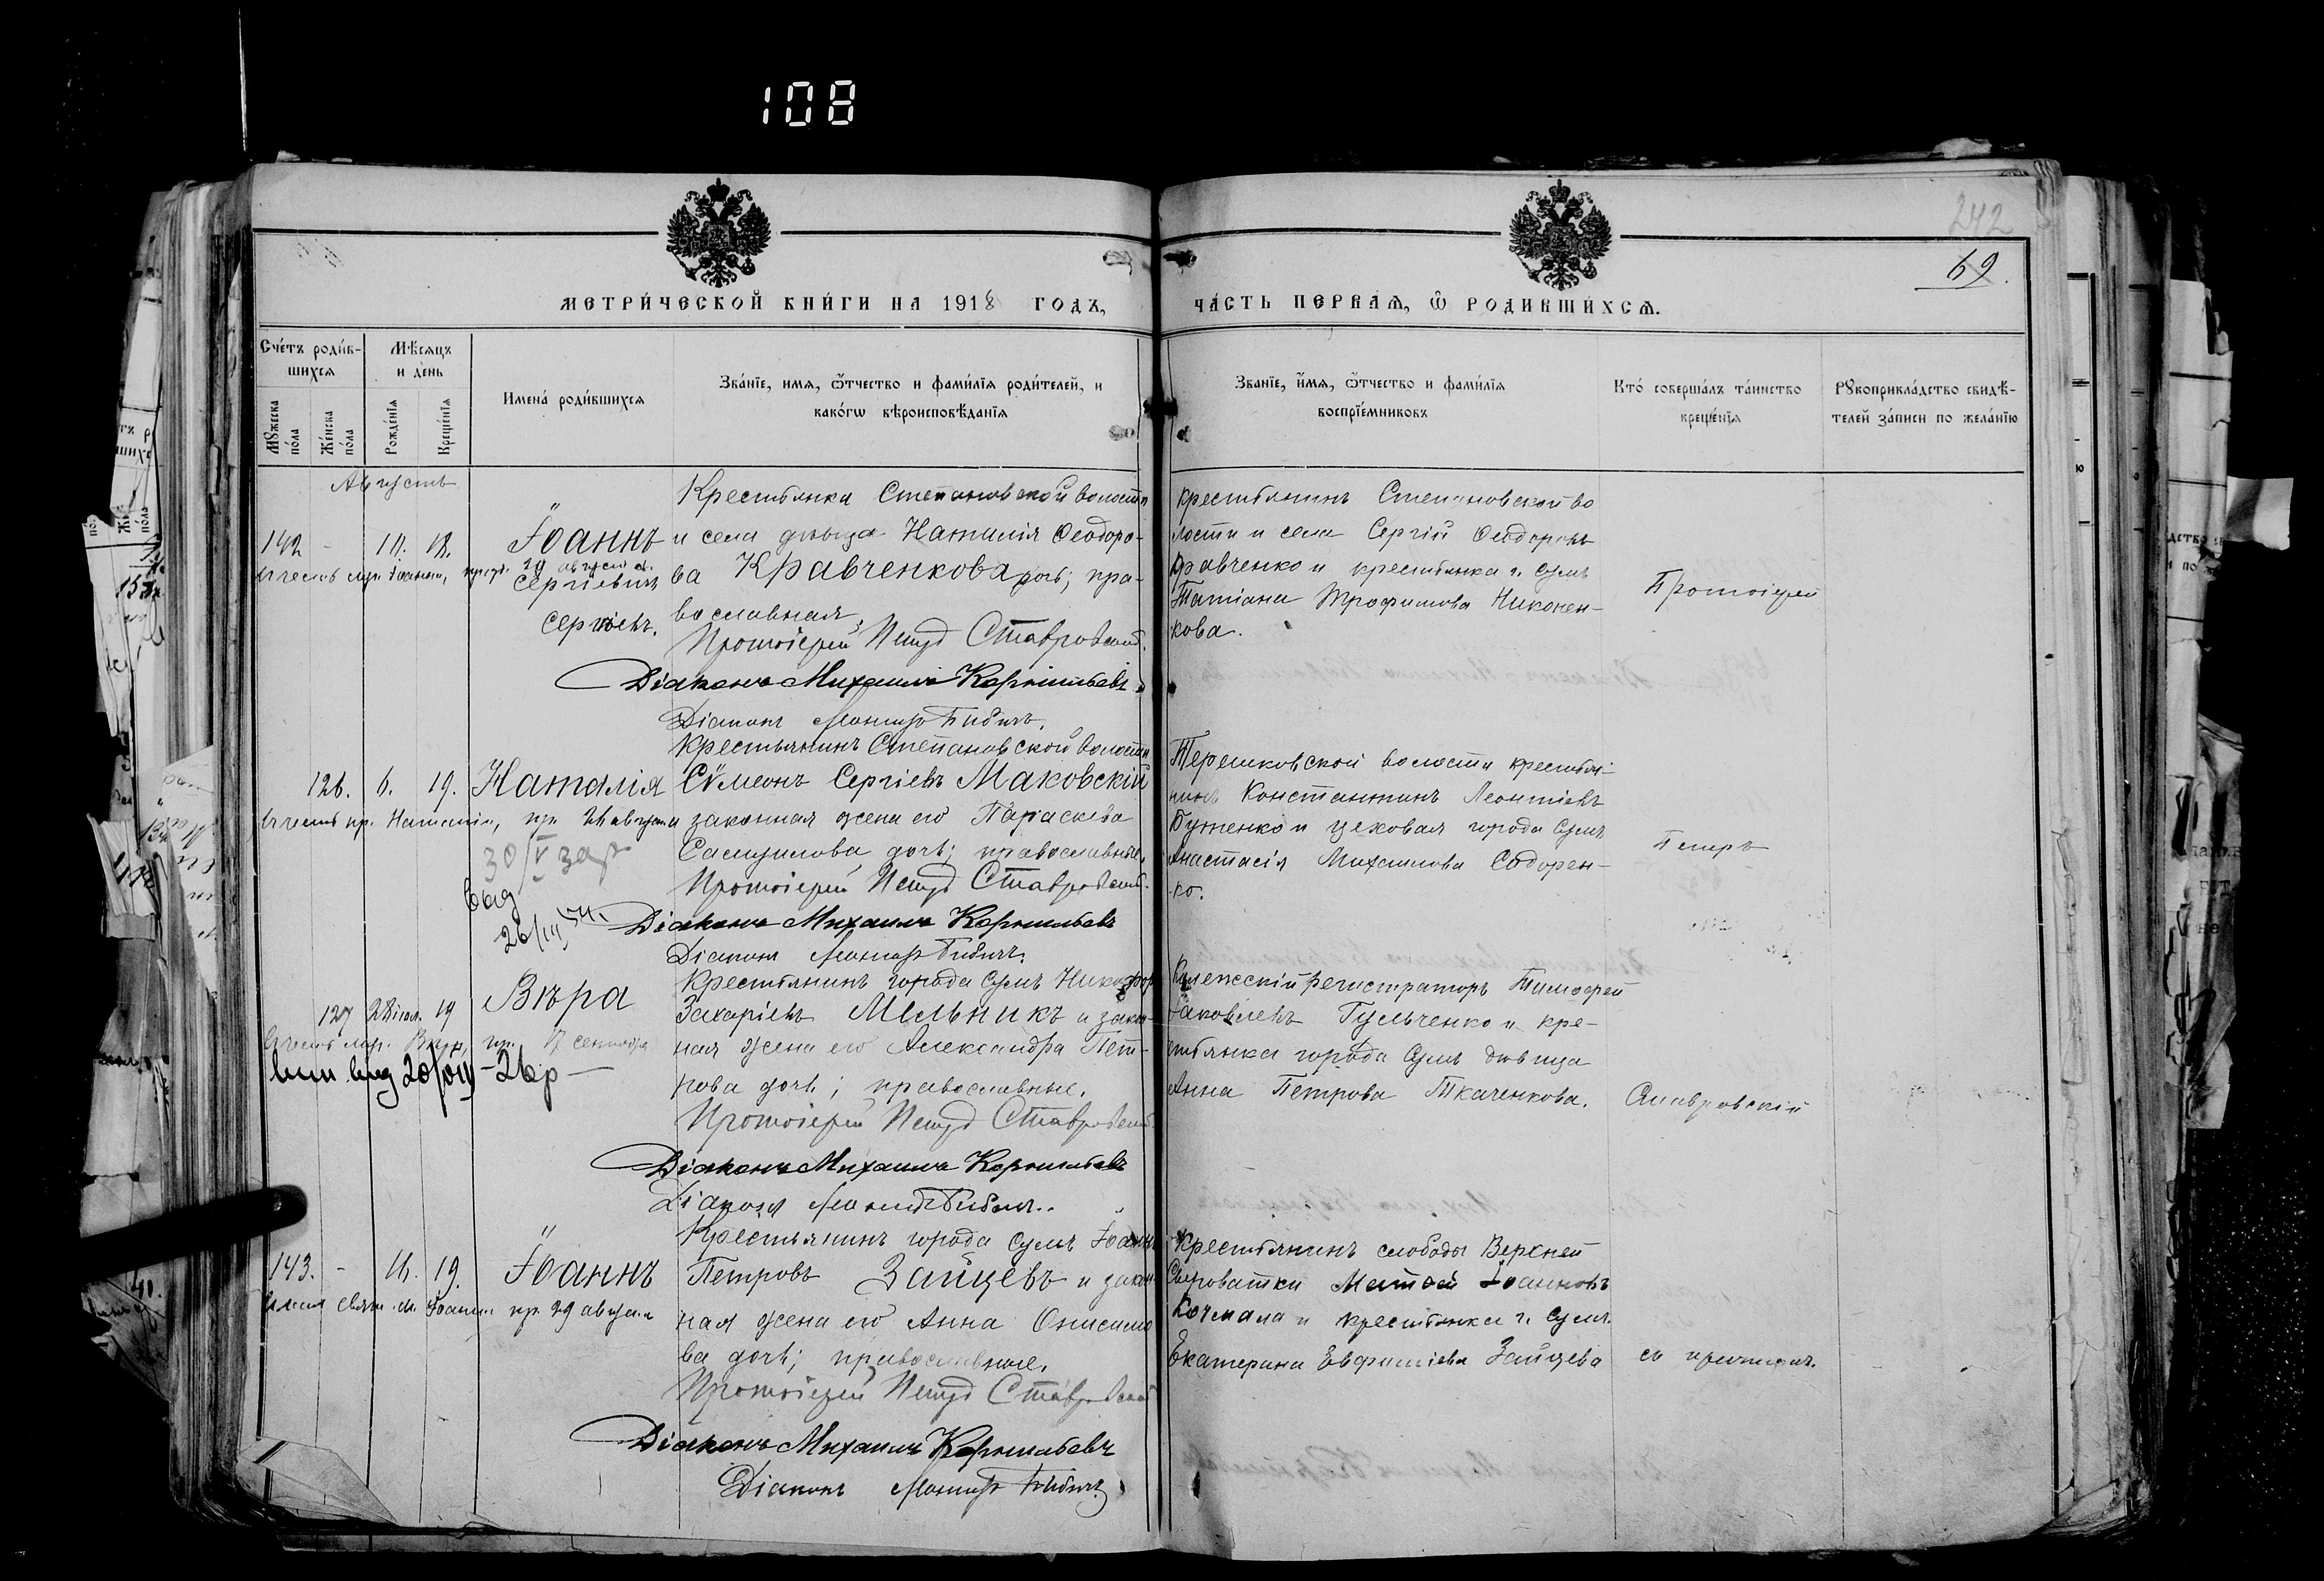 108
242
69.
МЕТРИ́ЧЕСКОЙ КНИ́ГИ НА 1918 ГОДЪ,
ЧА́СТЬ ПЕРВАѦ, Ѽ РОДИВШИ́ХСѦ.
Сче́тъ роди́в-
шихсѧ
Мѣ́сѧцъ
и де́нь
Мꙋ́жеска
по́ла
Же́нска
по́ла
Рожде́нїѧ
Креще́нїѧ
Имена̀ роди́вшихсѧ
Зва́нїе, имѧ, ѻ҆́тчество и фами́лїѧ роди́телей, и
како́гѡ вѣроисповѣ́данїѧ
Зва́нїе, и҆́мѧ, ѻ҆́тчество и фами́лїѧ
воспрїе́мниковъ
Кто́ соверша́лъ та́инство
креще́нїѧ
Рꙋкоприкла́дство свидѣ́-
телей за́писи по жела́нїю
Августъ
142 - 11. 18.
Іоаннъ
29 августа.
Сергіевичъ
Сергіевъ.
Крестьянка Степановской волости
и села дѣвица Наталія Ѳеодоро-
ва Кравченкова дочь; пра-
вославная.
Протоіерей Петръ Ставровскій.
Діаконъ Михаилъ Корнильевъ
Діаконъ
крестьянинъ Степановской во
лости и села Сергій Ѳеодоровъ
Кравченко и крестьянка г. Сумъ
Татіана Трофимова Никонен-
кова.
Протоіерей
126. 6. 19. Наталія
въ честь мр. Наталіи, пр. 26 августа
30/V зар
вид
26/III
Крестьянинъ Степановской волости
Сѵмеонъ Сергіевъ Маковскій
и законная жена его Параскева
Самуилова дочь; православные.
Протоіерей Петръ Ставровскій.
Діаконъ Михаилъ Корнильевъ
Діаконъ
Терешковской волости крестья-
нинъ Константинъ Леонтіевъ
Буженко и цеховая города Сумъ
Анастасія Михаилова Сидорен-
ко.
Петръ
127 28 іюл. 19
Вѣра
въ честь мр. Вѣры, пр. 17 сентября
вид 20/VIII - 26р -
Крестьянинъ города Сумъ Никифоръ
Захаріевъ Мельникъ и закон-
ная жена его Александра Пет-
рова дочь; православные.
Протоіерей Петръ Ставровскій
Діаконъ Михаилъ Корнильевъ
Діаконъ
Коллежскій регистраторъ Тимофей
Іаковлевъ Гульченко и кре-
стьянка города Сумъ дѣвица
Анна Петрова Ткаченкова.
Ставровскій
143. - 16. 19.
Іоаннъ
пр. 29 августа
Крестьянинъ города Сумъ Іоаннъ
Петровъ Зайцевъ и закон-
ная жена его Анна Онисимо
ва дочь; православные.
Протоіерей Петръ Ставровскій
Діаконъ Михаилъ Корнильевъ
Діаконъ
Крестьянинъ слободы Верхней
Сыроватки Матѳей Іоанновъ
Кочмала и крестьянка г. Сумъ
Екатерина Евфиміева Зайцева
съ причтомъ.